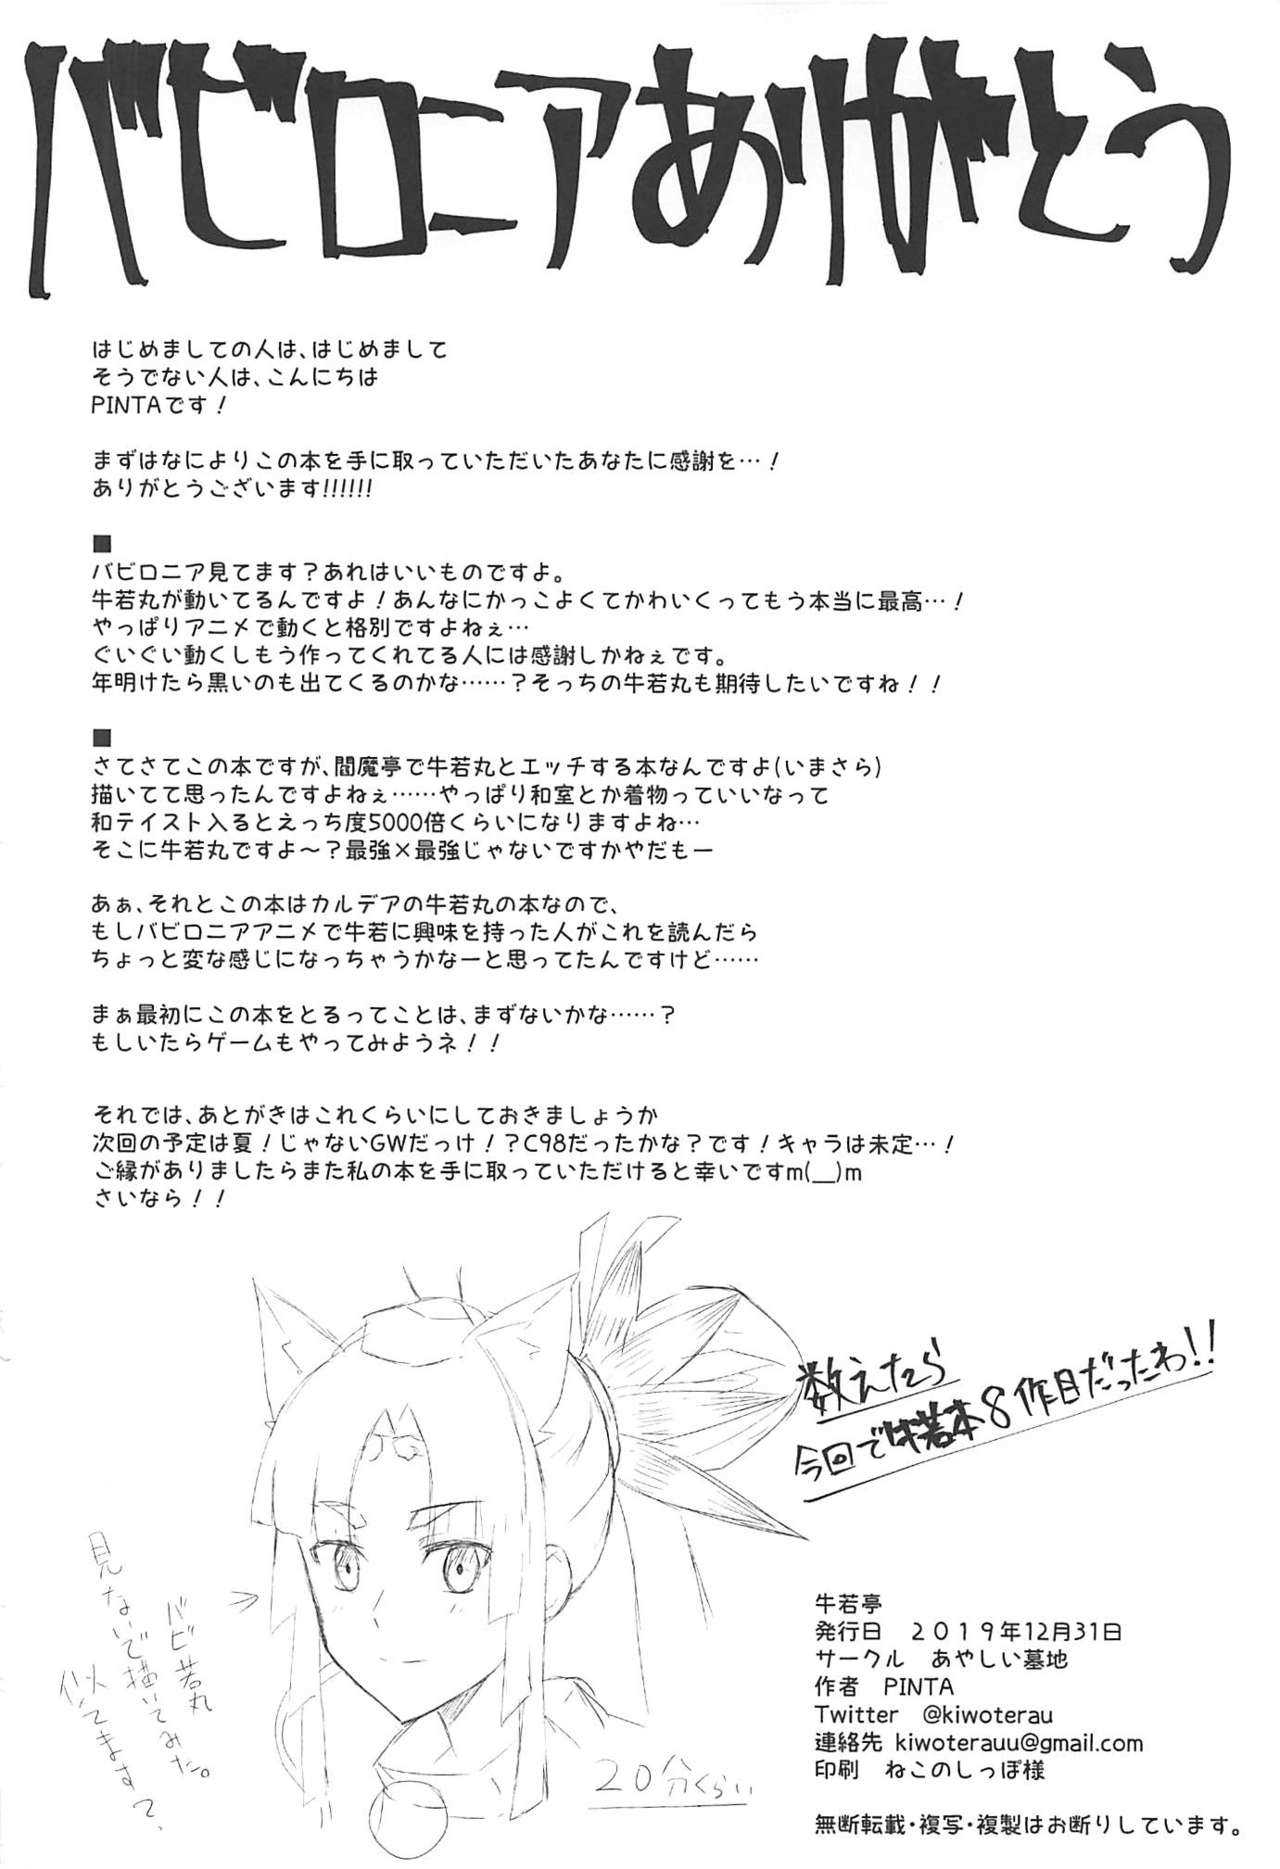 バビロニアありがとう
はじめましての人は、はじめまして
そうでない人は、こんにちは
PINTAです！
まずはなによりこの本を手に取っていただいたあなたに感謝を…！
ありがとうございます!!!!!!
■
バビロニア見てます？あれはいいものですよ。
牛若丸が動いてるんですよ！あんなにかっこよくてかわいくってもう本当に最高…！
やっぱりアニメで動くと格別ですよねぇ…
ぐいぐい動くしもう作ってくれてる人には感謝しかねぇです。
年明けたら黒いのも出てくるのかな……？そっちの牛若丸も期待したいですね！！
■
さてさてこの本ですが、閻魔亭で牛若丸とエッチする本なんですよ(いまさら)
描いてて思ったんですよねぇ……やっぱり和室とか着物っていいなって
和テイスト入るとえっち度5000倍くらいになりますよね…
そこに牛若丸ですよ～？最強×最強じゃないですかやだもー
あぁ、それとこの本はカルデアの牛若丸の本なので、
もしバビロニアアニメで牛若に興味を持った人がこれを読んだら
ちょっと変な感じになっちゃうかなーと思ってたんですけど……
まぁ最初にこの本をとるってことは、まずないかな……？
もしいたらゲームもやってみようネ！！
それでは、あとがきはこれくらいにしておきましょうか
次回の予定は夏！じゃないGWだっけ！？C98だったかな？です！キャラは未定…！
ご縁がありましたらまた私の本を手に取っていただけると幸いですm(__)m
さいなら！！
数えたら
今回で牛若本8作目だったわ!!
バビ若丸
見ないで描いてみた。
似てますて、
20分くらい
牛若亭
発行日　２０１９年12月31日
サークル　あやしい墓地
作者　PINTA
Twitter　@kiwoterau
連絡先 kiwoterauu@gmail.com
印刷　ねこのしっぽ様
無断転載・複写・複製はお断りしています。